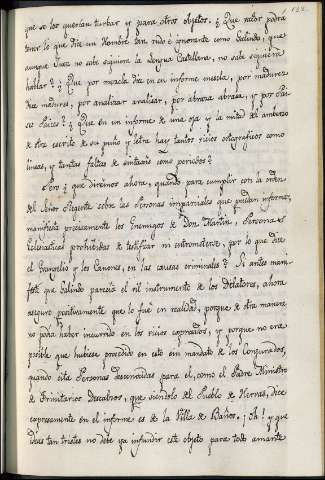 122.
que se los querian turbar y para otros objetos. ¿Que valor podra
tener lo que dice un Hombre tan rudo é ignorante como Galindo, que
aunque Juez no sabe siquiera la lengua Castellana, no sabe siquiera
hablar? ¿Que por mezcla dice en su informe mescla, por madurez
dice madures, por analizar avalisar, por abraza abrasa, y por
Juez Jues? ¿Que en un informe de una oja y la mitad del anverso
de otra escrito de su puño y letra hay tantos vicios ortograficos como
lineas, y tantas faltas de sintaxis como periodos?
Pero ¿que diremos ahora, quando para cumplir con la orden
del Señor Regente sobre las Personas imparciales que puedan informar,
manifiesta precisamente los Enemigos de Don Martin, Personas
Eclesiasticas prohibidas de testificar ni entrometerse, por lo que dice
el Evangelio y los Canones, en las causas criminales? Si antes mani-
festé que Galindo parecia el vil instrumento de los Delatores, ahora
aseguro positivamente que lo fué en realidad, porque de otra manera
no podia haber incurrido en los vicios expresados, y porque no era
posible que hubiese procedido en esto sin mandato de los Conjurados,
quando cita Personas desconocidas para el, como el Padre Ministro
de Trinitarios Descalzos, que siendolo del Pueblo de Hervas, dice
expresamente en el informe es de la Villa de Baños. ¡Ha! y que
ideas tan tristes no debe ya infundir este objeto para todo amante